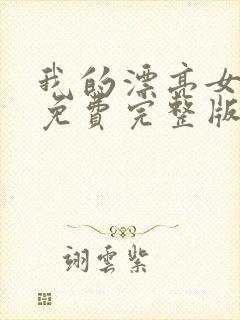 我的漂亮女
免费完整版
翊雲紫